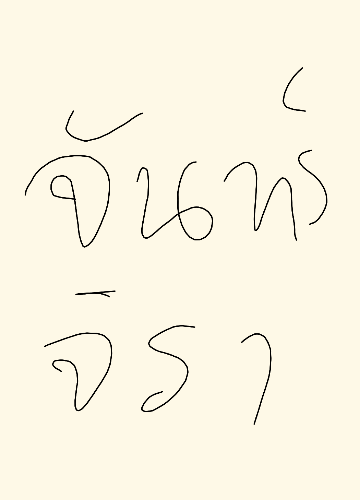 จันทร์
จิรา